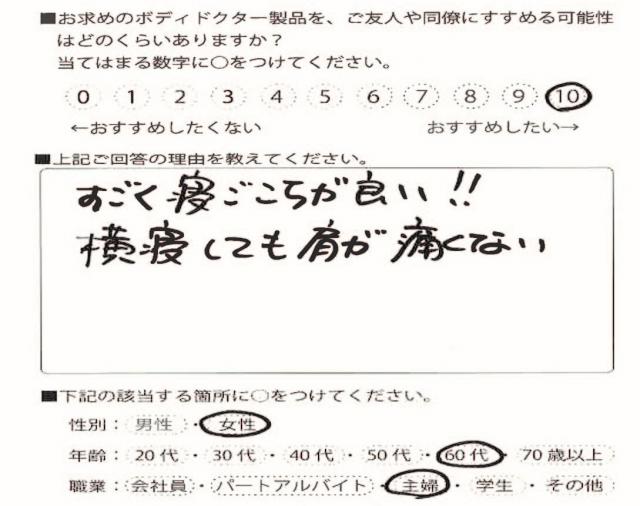 ■お求めのボディドクター製品を、ご友人や同僚にすすめる可能性
はどのくらいありますか?
当てはまる数字に○をつけてください。
0 1 2 3 4 5 6 7 8 9 10
←おすすめしたくない おすすめしたい→
■上記ご回答の理由を教えてください。
すごく寝ごこちが良い!!
横寝しても肩が痛くない
■下記の該当する箇所に○をつけてください。
性別:男性・女性
年齢:20代・30代・40代・50代・60代・70歳以上
職業:会社員・パートアルバイト・主婦・学生・その他